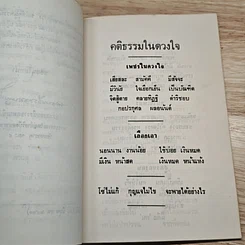 คติธรรมในดวงใจ
เพชรในดวงใจ
เสียสละ สามัคคี มีสัจจะ
มีวินัย ใจเยือกเย็น เป็นบัณฑิต
จิตสู้ตาย คลายทิฏฐิ ดำริชอบ
กอปรกุศล ผลอนันต์
เลือกเอา
นอนนาน งานน้อย ใช้บ่อย เงินหมด
มีเงิน หน้าสด เงินหมด หน้าแห้ง
โซ่ไม่แก้ กุญแจไม่ไข จะพายได้อย่างไร